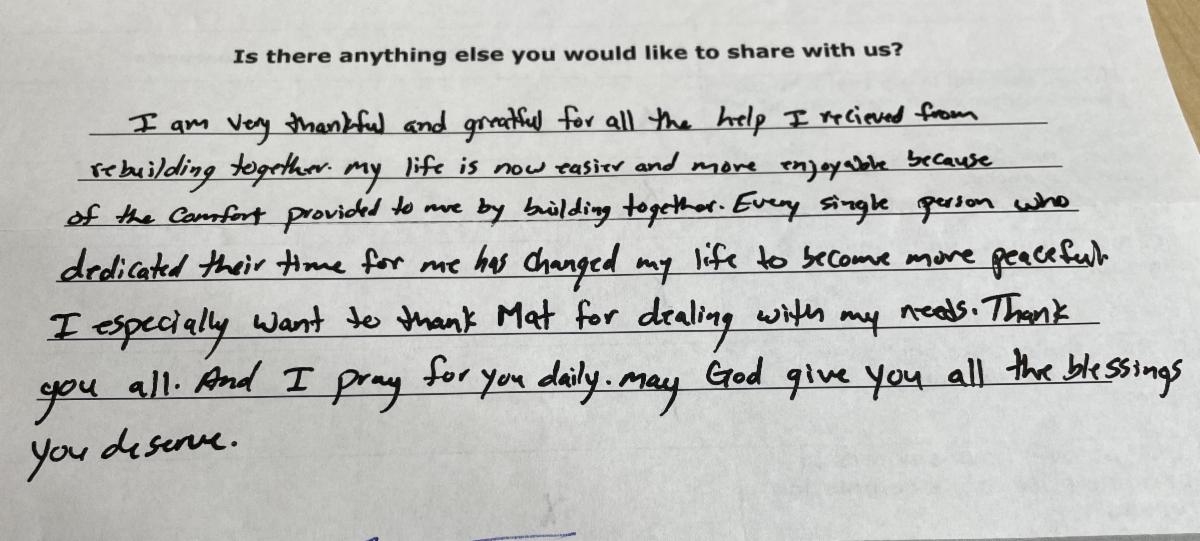 Is there anything else you would like to share with us?
I am very thankful and greatful for all the help I recieved from
rebuilding together. my life is now easier and more enjoyable because
of the comfort provided to me by building together. Every single person who
dedicated their time for me has changed my life to become more peaceful.
I especially want to thank Mat for dealing with my needs. Thank
you all. And I pray for you daily. may God give you all the blessings
you deserve.